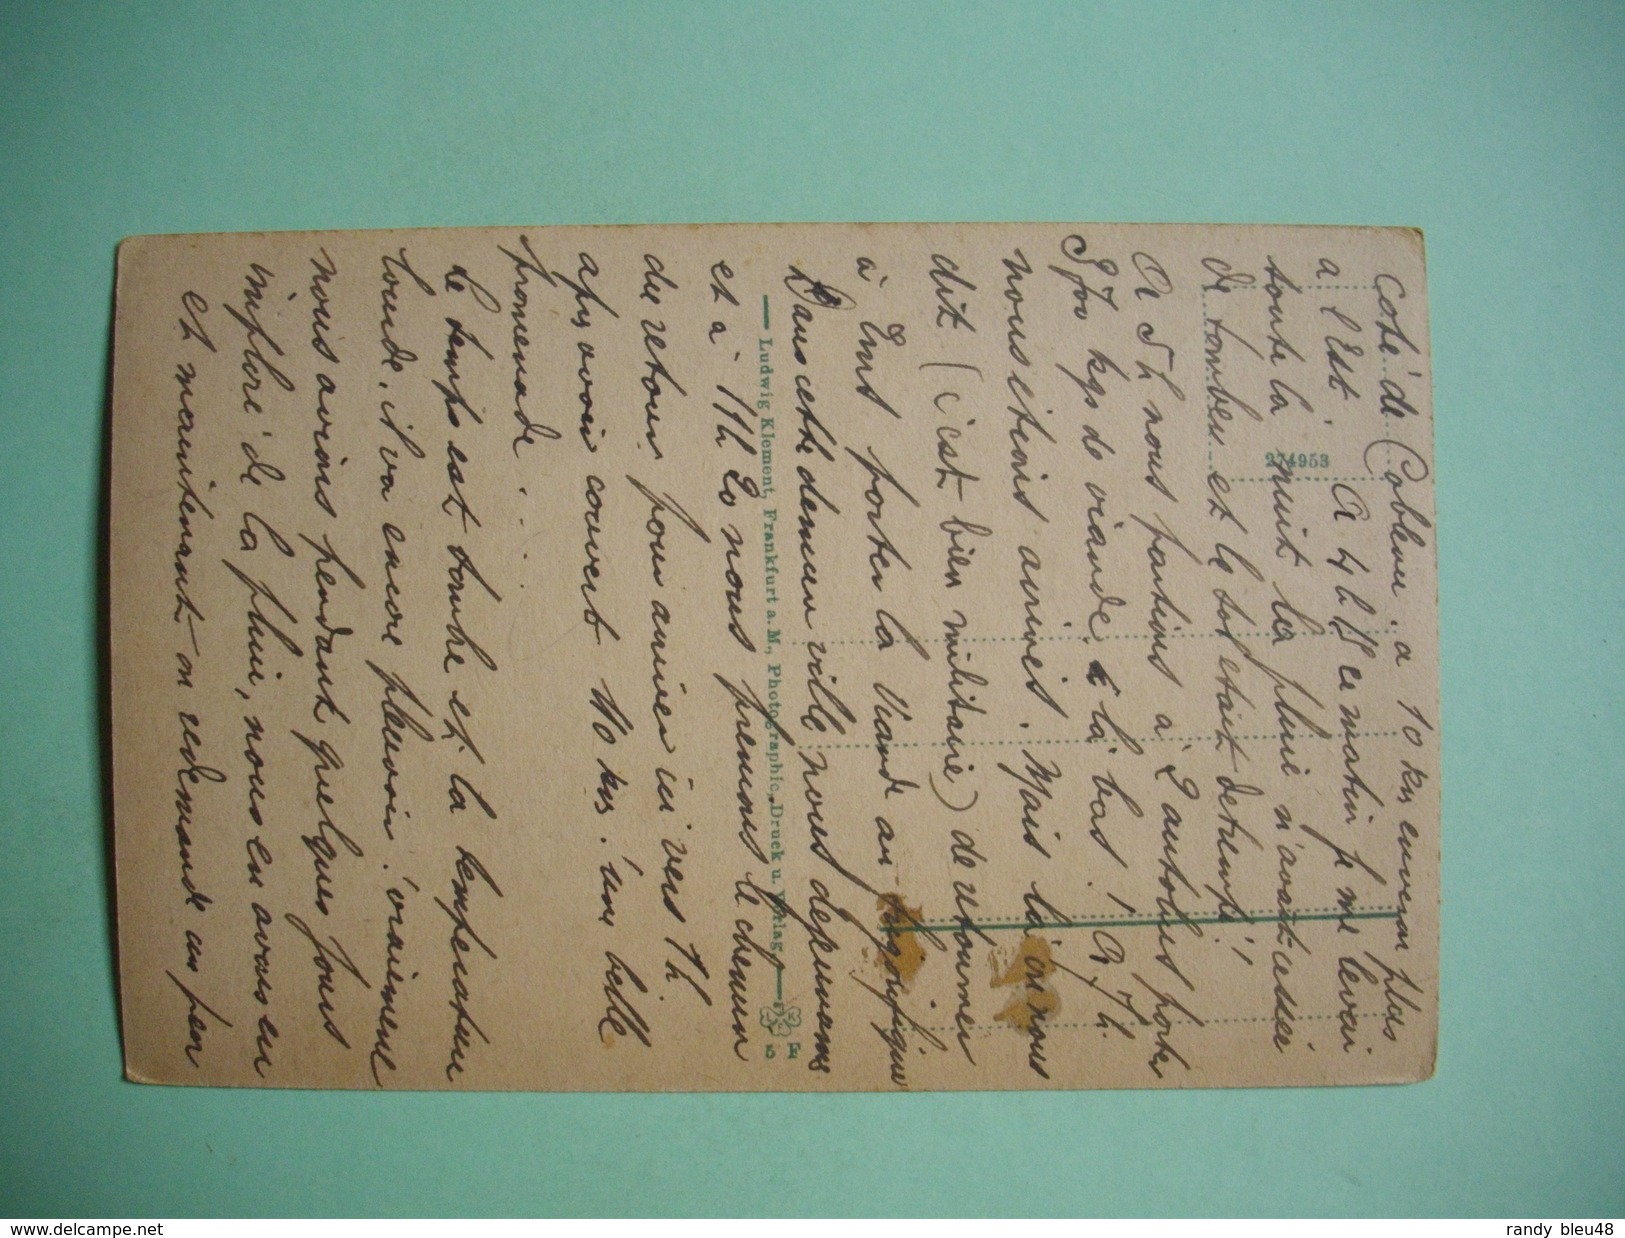 coté de Coblenz. à 10 kms environ plus
a l'Est. A 4h15 ce matin je me levais
toute la nuit la pluie n'avait cessé
de tomber et le sol etait detrempé!
A 5h nous partions à 2 autobus porter
kgs de viande là bas! A 7h.
nous etions arrivés. Mais là on nous
dit (c'est bien militaire) de retourner
à Ems porter la viande au frigorifique
Dans cette derniere ville nous dejeunons
et à 11h 20 nous prenons le chemin
du retour pour arriver ici vers 1h.
apres avoir couvert 110 kms. une belle
promenade . . . .
Le temps est tombe et la temperature
lourde. il va encore pleuvoir. vraiment
nous avions pendant quelques jours
imploré de la pluie, nous en avons eu
et maintenant on redemande un peu
Ludwig Klement, Frankfurt a. M., Photographie, Druck u. Verlag
274953
www.delcampe.net
randy_bleu48